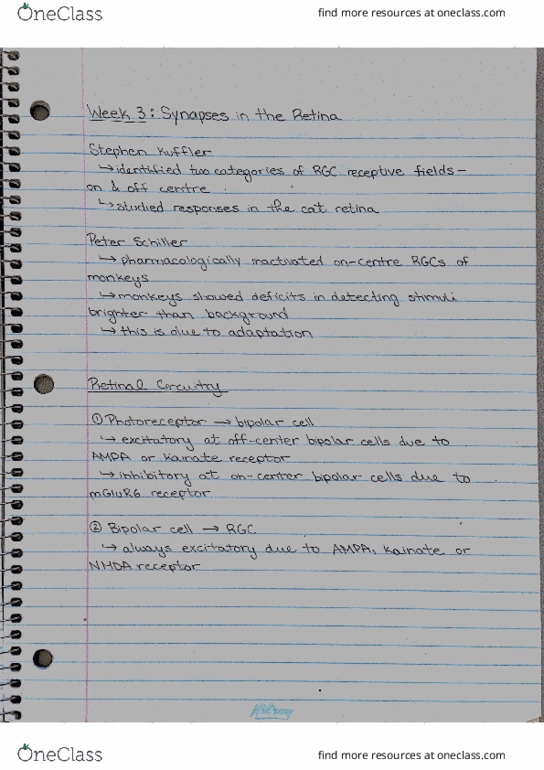 OneClass
find more resources at oneclass.com
Week 3: Synapses in the Retina
Stephen Kuffler
↳ identified two categories of RGC receptive fields -
on & off centre
↳ studied responses in the cat retina
Peter Schiller
→ pharmacologically inactivated on-centre RGCs of
monkeys
→ monkeys showed deficits in detecting stimuli
brighter than background
→ this is due to adaptation
Retinal Circuitry
① Photoreceptor → bipolar cell
↳ excitatory at off-center bipolar cells due to
AMPA or kainate receptor
↳ inhibitory at on-center bipolar cells due to
mGluR6 receptor
② Bipolar cell → RGC
↳ always excitatory due to AMPA, kainate or
NMDA receptor
Hilroy
OneClass
find more resources at oneclass.com